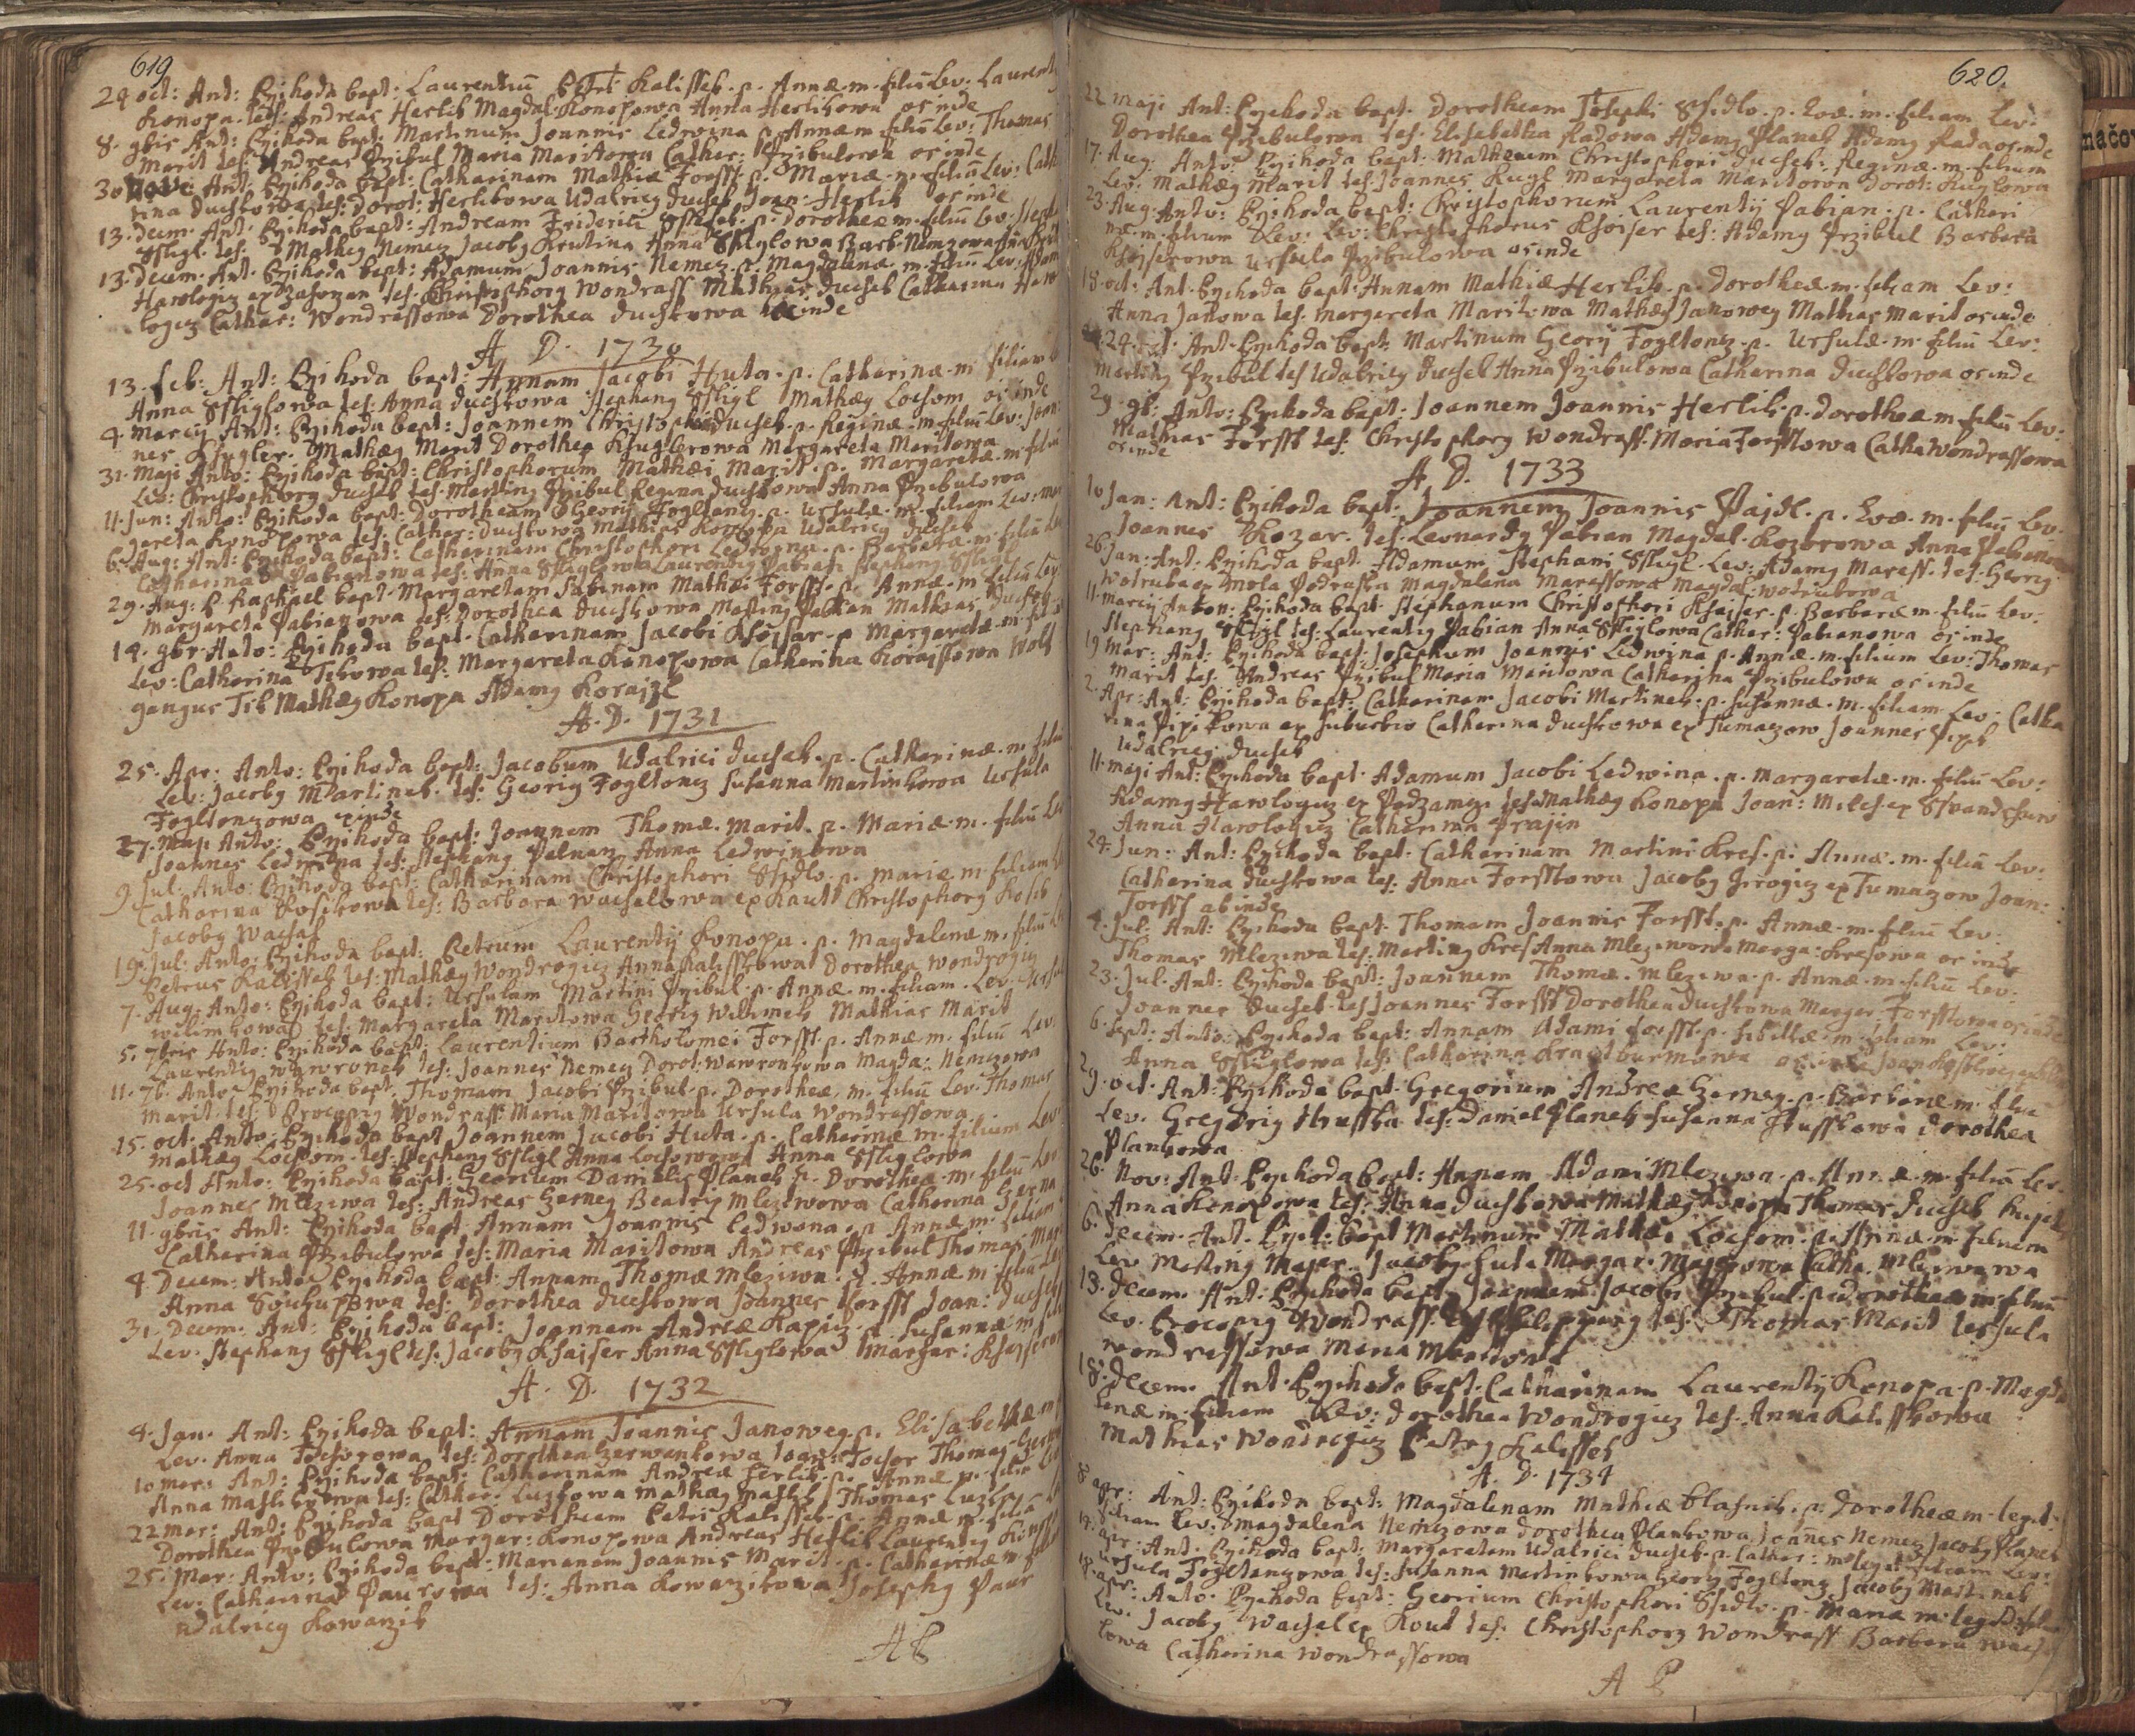 619
24 oct: Ant: Przihoda bapt: Laurentiū Petri Kalisseb. p. Annæ. m. filiū Lev: Laurenty
Konopa. tes: Andreas Herlik Magdal. Konopowa Anna Herlikowa orinde
8. 9bris Ant: Przihoda bapt: Martinum Joannis Ledwina p. Annæ m filiū Lev: Thomas
Marit tes: Andreas Przibul Maria Maritowa Cather: Przibulowa orinde
30 Ant: Przihoda bapt: Catharinam Mathiæ Forsst. p. Mariæ. m. filiā Lev: Catha
rina Duchkowa tes: Dorot: Herlikowa Udalricy Duchek Joan: Herlik orinde
13. Decem. Ant. Przihoda bapt: Andream Friderici p. Dorotheæ m. filiū Lev:
Sstigl. tes: Mathey Nemecz Jacoby Krutina Anna Sstiglowa Barb. Nemczowa
13. Decem. Ant. Przihoda bapt: Adamum Joannis Nemecz. p. Magdalenæ. m. filiū Lev: Adam
Hawlogicz ex Zahorzan tes. Christophorg Wondrass Mathias Duchek Catharina Haw
logicz Cathar: Wondrassowa Dorothea Duchkowa hicinde
A D. 1730
13. feb: Ant: Przihoda bapt: Annam Jacobi Huta. p. Catharinæ. m filiam
Anna Sstiglowa tes: Anna Duchkowa Stephang Sstigl Mathæg Lochom orinde
4. Marcij Ant: Przihoda bapt: Joannem Christophori Duchek. p. Reginæ. m. filiū Lev: Joan
nes Kfugler. Mathæg Marit Dorothea Kfuglerowa Margareta Maritowa
31. Maji Anto: Przihoda bapt: Christophorum Mathæi Marit. p. Margaretæ. m. filiū
Lev: Christophorg Duchek tes. Marting Przibul Regina Duchkowa Anna Przibulowa
11. Jun: Anto: Przihoda bapt: Dorotheam Georij Fogltancz. p. Ursulæ. m. filiam Lev: Mar
gareta Konopowa tes: Cather: Duchkowa Mathias Konopa Udalricg Duchek
6. Aug: Ant: Przihoda bapt: Catharinam Christophori Ledwina. p. Barbaræ. m. filiū
Catharina Pabianowa tes: Anna Sstiglowa Laurentig Pabian Stephang Sstigl
29. Aug: P. Raphael bapt. Margaretam Sabinam Mathæi Forsst. p. Annæ. m filiū Lev
Margareta Pabianowa tes: Dorothea Duchkowa Marting Pabian Mathias Duchek
14. 9br. Anto: Przihoda bapt. Catharinam Jacobi Kfoisar. p Margaretæ. m. fil
Lev: Catharina Tekowa tes: Margareta Konopowa Catharina Korajssowa Wolf
gangus Tek Mathæg Konopa Adamg Korajzl
A. D. 1731
25. Apr: Anto: Przihoda bapt: Jacobum Udalrici Duchek. p. Catharinæ. m. filiū
Lev: Jacobg Martinek. tes: Georig Fogltoncz Susanna Martinkowa Ursula
Fogltonczowa exinde
27. Maji Anto: Przihoda bapt: Joannem Thomæ. Marit. p. Mariæ. m. filiū
Joannes Ledwina tes: Stephang Pelnarz Anna Ledwinowa
9. Jul: Anto: Przihoda bapt: Catharinam Christophori Sfidlo. p. Mariæ m. filiam
Catharina Kosikowa tes: Barbara Wachalowa ex Kaut Christophorg Kosek
Jacobg Wachal
19. Jul: Anto: Przihoda bapt: Petrum Laurentij Konopa. p. Magdalenæ m. filiū
Petrus Kalissek tes: Mathæg Wondrogicz Anna Kalisskowa Dorothea Wondrogicz
7. Aug: Anto: Przihoda bapt: Ursulam Martini Przibul. p. Annæ. m. filiam. Lev. Ursula
Wilimkowa tes: Margareta Maritowa Georig Wilimek Mathias Marit
5. 7bris Anto: Przihoda bapt: Laurentium Bartholomei Forsst. p. Annæ. m. filiū Lev
Laurentig Wawronek tes: Joannes Nemecz Dorot: Wawronkowa Magda: Nemczowa
11. 7b. Anto: Przihoda bapt. Thomam Jacobi Przibul. p. Dorotheæ. m. filiū Lev. Thomas
Marit. tes: Procopig Wondrass Maria Maritowa Ursula Wondrassowa
15. oct. Anto: Przihoda bapt. Joannem Jacobi Huta. p. Catharinæ m. filium Lev
Mathæg Lochom. tes. Stephang Sstigl Anna Lochomowa Anna Sstiglowa
25. oct Anto: Przihoda bapt: Georium Danielis Planek p. Dorotheæ. m. filiū Lev
Joannes Mleziwa tes: Andreas Gerneg Beatrix Mlezewowa Catharina Gerna
11. 9bris Ant: Przihoda bapt. Annam Joannis Ledwena. p Annæ. m. filiam
Catharina Przibulowa tes: Maria Maritowa Andreas Przibul Thomas Mar
4. Decem: Anto: Przihoda bapt: Annam Thomæ Mleziwa. p. Annæ m filiā Lev
Anna Souchupowa tes: Dorothea Duchkowa Joannes Forsst Joan: Duchek
31. Decem: Ant: Przihoda bapt: Joannem Andreæ Kapicz. p. Susannæ m fil
Lev: Stephang Sstigl tes: Jacobg Khaiser Anna Sstiglowa Margar: Khaiserow
A. D. 1732
4. Jan. Ant: Przihoda bapt: Annam Joannis Janoweg. p. Elisabethæ m
Lev. Anna Tochorowa. tes: Dorothea Czerwenkowa Joan: Tochor Thomas Czerw
10 Mar: Ant: Przihoda bapt: Catharinam Andreæ Herlik. p. Annæ m. filiā
Anna Maslikowa tes: Cather. Luzkowa Mathæg Maslik Thomas Luzka
22 Mar: Ant: Przihoda bapt Dorotheam Petri Kalissek. p. Annæ m. filiā
Dorothea Przibulowa Margar: Konopowa Andreas Herlik Laurentig Konopa
25. Mar: Anto: Przihoda bapt: Marianam Joannis Marit. p. Catharinæ m.
Lev: Catharina Paurowa tes: Anna Kowarzikowa Josephg Paur
Udalricg Kowarzik
A P
620.
22 Maji Ant: Przihoda bapt. Dorotheam Josephi Sfidlo. p. Evæ. m. filiam Lev:
Dorothea Przibulowa tes. Elisabetha Radowa Adamg Planek Adamg Rada orinde
17. Aug: Anto: Przihoda bapt: Mathæum Christophori Duchek. Reginæ. m. filium
Lev: Mathæg Marit tes. Joannes Kugl Margareta Maritowa Dorot: Kuglowa
23. Aug. Anto: Przihoda bapt: Christophorum Laurentij Pabian. p. Cathari
næ. m. filium Lev: Christophorus Khoiser tes: Adamg Przibul Barbara
Khoiserowa Ursula Przibulowa orinde
18. oct: Ant. Przihoda bapt: Annam Mathiæ Herlik. p. Dorotheæ. m. filiam Lev:
Anna Janowa tes. Margareta Maritowa Mathæg Janoweg Mathias Marit orinde
24. oct. Ant. Przihoda bapt: Martinum Georij Fogltoncz. p. Ursulæ. m. filiū Lev:
Marting Przibul tes Udalricg Duchek Anna Przibulowa Catharina Duchkowa orinde
29. 9b: Anto: Przihoda bapt: Joannem Joannis Herlik. p. Dorotheæ m. filiū Lev:
Mathias Forsst tes: Christophorg Wondrass. Maria Forsstowa Catha Wondrassowa
orinde
A. D. 1733
10 Jan: Ant: Przihoda bapt: Joannem Joannis Pajdl. p. Evæ. m. filiū Lev.
Joannes Kozar. tes. Leonardg Pabian Magdal. Kozorowa Anna Pabianowa
26. Jan: Ant: Przihoda bapt. Adamum Stephani Sstigl. Lev: Adamg Maress. tes: Georig
Wotruba ex Mola Podraska Magdalena Maressowa Magdal: Wotrubowa
11. Marcij Anton: Przihoda bapt. Stephanum Christophori Khajser. p. Barbaræ m. filiū Lev:
Stephang Sstigl tes: Laurentig Pabian Anna Sstiglowa Cather: Pabianowa orinde
19 Mar: Ant: Przihoda bapt: Josephum Joannes Ledwina p. Annæ. m. filium Lev: Thomas
Marit tes: Andreas Przibul Maria Maritowa Catharina Przibulowa orinde
2. Apr: Ant: Przihoda bapt: Catharinam Jacobi Martinek. p. Susannæ. m. filiam Lev: Catha
rina Pipikowa ex Suburbio Catharina Duchkowa ex Tumaczow Joannes Pipek
Udalricg Duchek
11. Maji Ant: Przihoda bapt. Adamum Jacobi Ledwina. p. Margaretæ. m. filiū Lev:
Adamg Hawlogicz ex Podzamczi tes: Mathæg Konopa Joan: Milch ex
Anna Hawlogicz Catharina Prajin
24. Jun: Ant: Przihoda bapt. Catharinam Martini Kres. p. Annæ. m. filiā Lev:
Catharina Duchkowa tes: Anna Forsstowa Jacobg Jirogicz ex Tumaczow Joan:
Forsst abinde
4. Jul: Ant: Przihoda bapt. Thomam Joannis Forsst. p. Annæ. m. filiū Lev:
Thomas Mleziwa tes: Marting Kres Anna Mleziwowa Marga: Kresowa orinde
23. Jul. Ant: Przihoda bapt: Joannem Thomæ. Mleziwa. p. Annæ. m. filiū Lev:
Joannes Duchek. tes Joannes Forsst Dorothea Duchkowa Margar. Forsstowa orinde
6. Sept: Anto: Przihoda bapt: Annam Adami Forsst. p. Sibillæ. m. filiam Lev:
Anna Sstiglowa tes: Catharina orinde
29. oct. Ant: Przihoda bapt. Gregorium Andreæ Gerneg. p. Barbaræ m. filiū
Lev. Gregorig Hrusska tes: Daniel Planek Susanna Hrusskowa Dorothea
Plankowa
26. Nov: Ant. Przihoda bapt: Annam Adami Mleziwa. p. Annæ. m. filiā Lev.
Anna Konopowa tes. Anna Duchkowa Mathæg Konopa Thomas Duchek
6. Decem. Ant. Przih: bapt Martinum Mathæi Lochom. p. Annæ. m. filium
Lev Marting Majer. Jacobg Huta Margar. Majerowa Catha. Mleziwowa
13. Decem. Ant: Przihoda bapt. Joannem Jacobi Przibul. p. Dorotheæ m. filiū
Lev. Procopig Wondrass. tes: Thomas Marit Ursula
Wondrassowa Maria Maritowa
18. Decem. Ant. Przihoda bapt. Catharinam Laurentij Konopa. p. Magda
lenæ m. filiam Lev: Dorothea Wondrogicz tes. Anna Kalisskowa
Mathias Wondrogicz Petrg Kalissek
A. D. 1734
8 apr: Ant: Przihoda bapt: Magdalenam Mathiæ Blasnik. p. Dorotheæ m. legit:
filiam Lev: Magdalena Nemczowa Dorothea Plankowa Joanes Nemecz Jacobg Planek
14. apr: Ant. Przihoda bapt: Margaretam Udalrici Duchek. p. Cather: m. legit filiam Lev:
Ursula Fogltanzowa tes: Susanna Martinkowa Georg Fogltonz Jacobg Martinek
18. apr: Anto: Przihoda bapt: Georium Christophori Sfidlo. p. Mariæ m. legit. filiū
Lev. Jacobg Wachal ex Kout tes: Christophorg Wondrass Barbara Wach
lowa Catharina Wondrassowa
A P
mačo